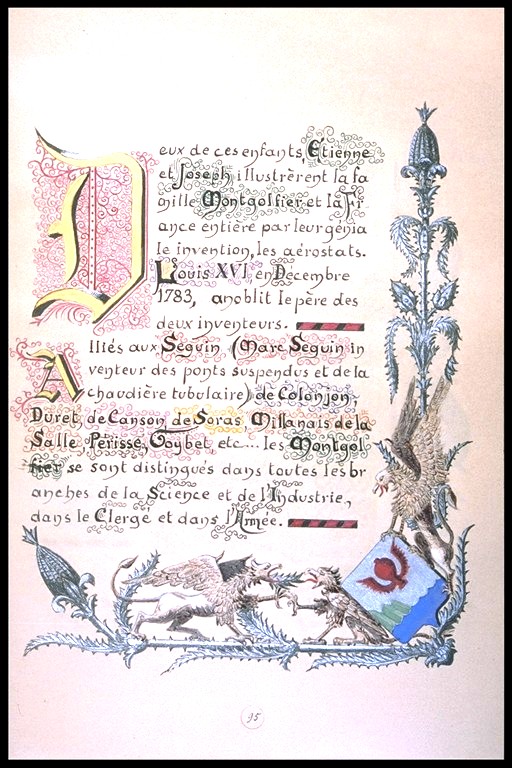 Deux de ces enfants, Étienne
et Joseph illustrèrent la fa
mille Montgolfier et la Fr
ance entière par leur génia
le invention, les aérostats.
Louis XVI, en Décembre
1783, anoblit le père des
deux inventeurs.
Alliés aux Seguin, (Marc Seguin in
venteur des ponts suspendus et de la
chaudière tubulaire) de Colonjon,
Duret, de Canson, de Soras, Millanais de la
Salle, Périsse, Goybet, etc... les Montgol
fier se sont distingués dans toutes les br
anches de la Science et de l'Industrie,
dans le Clergé et dans l'Armée.
95